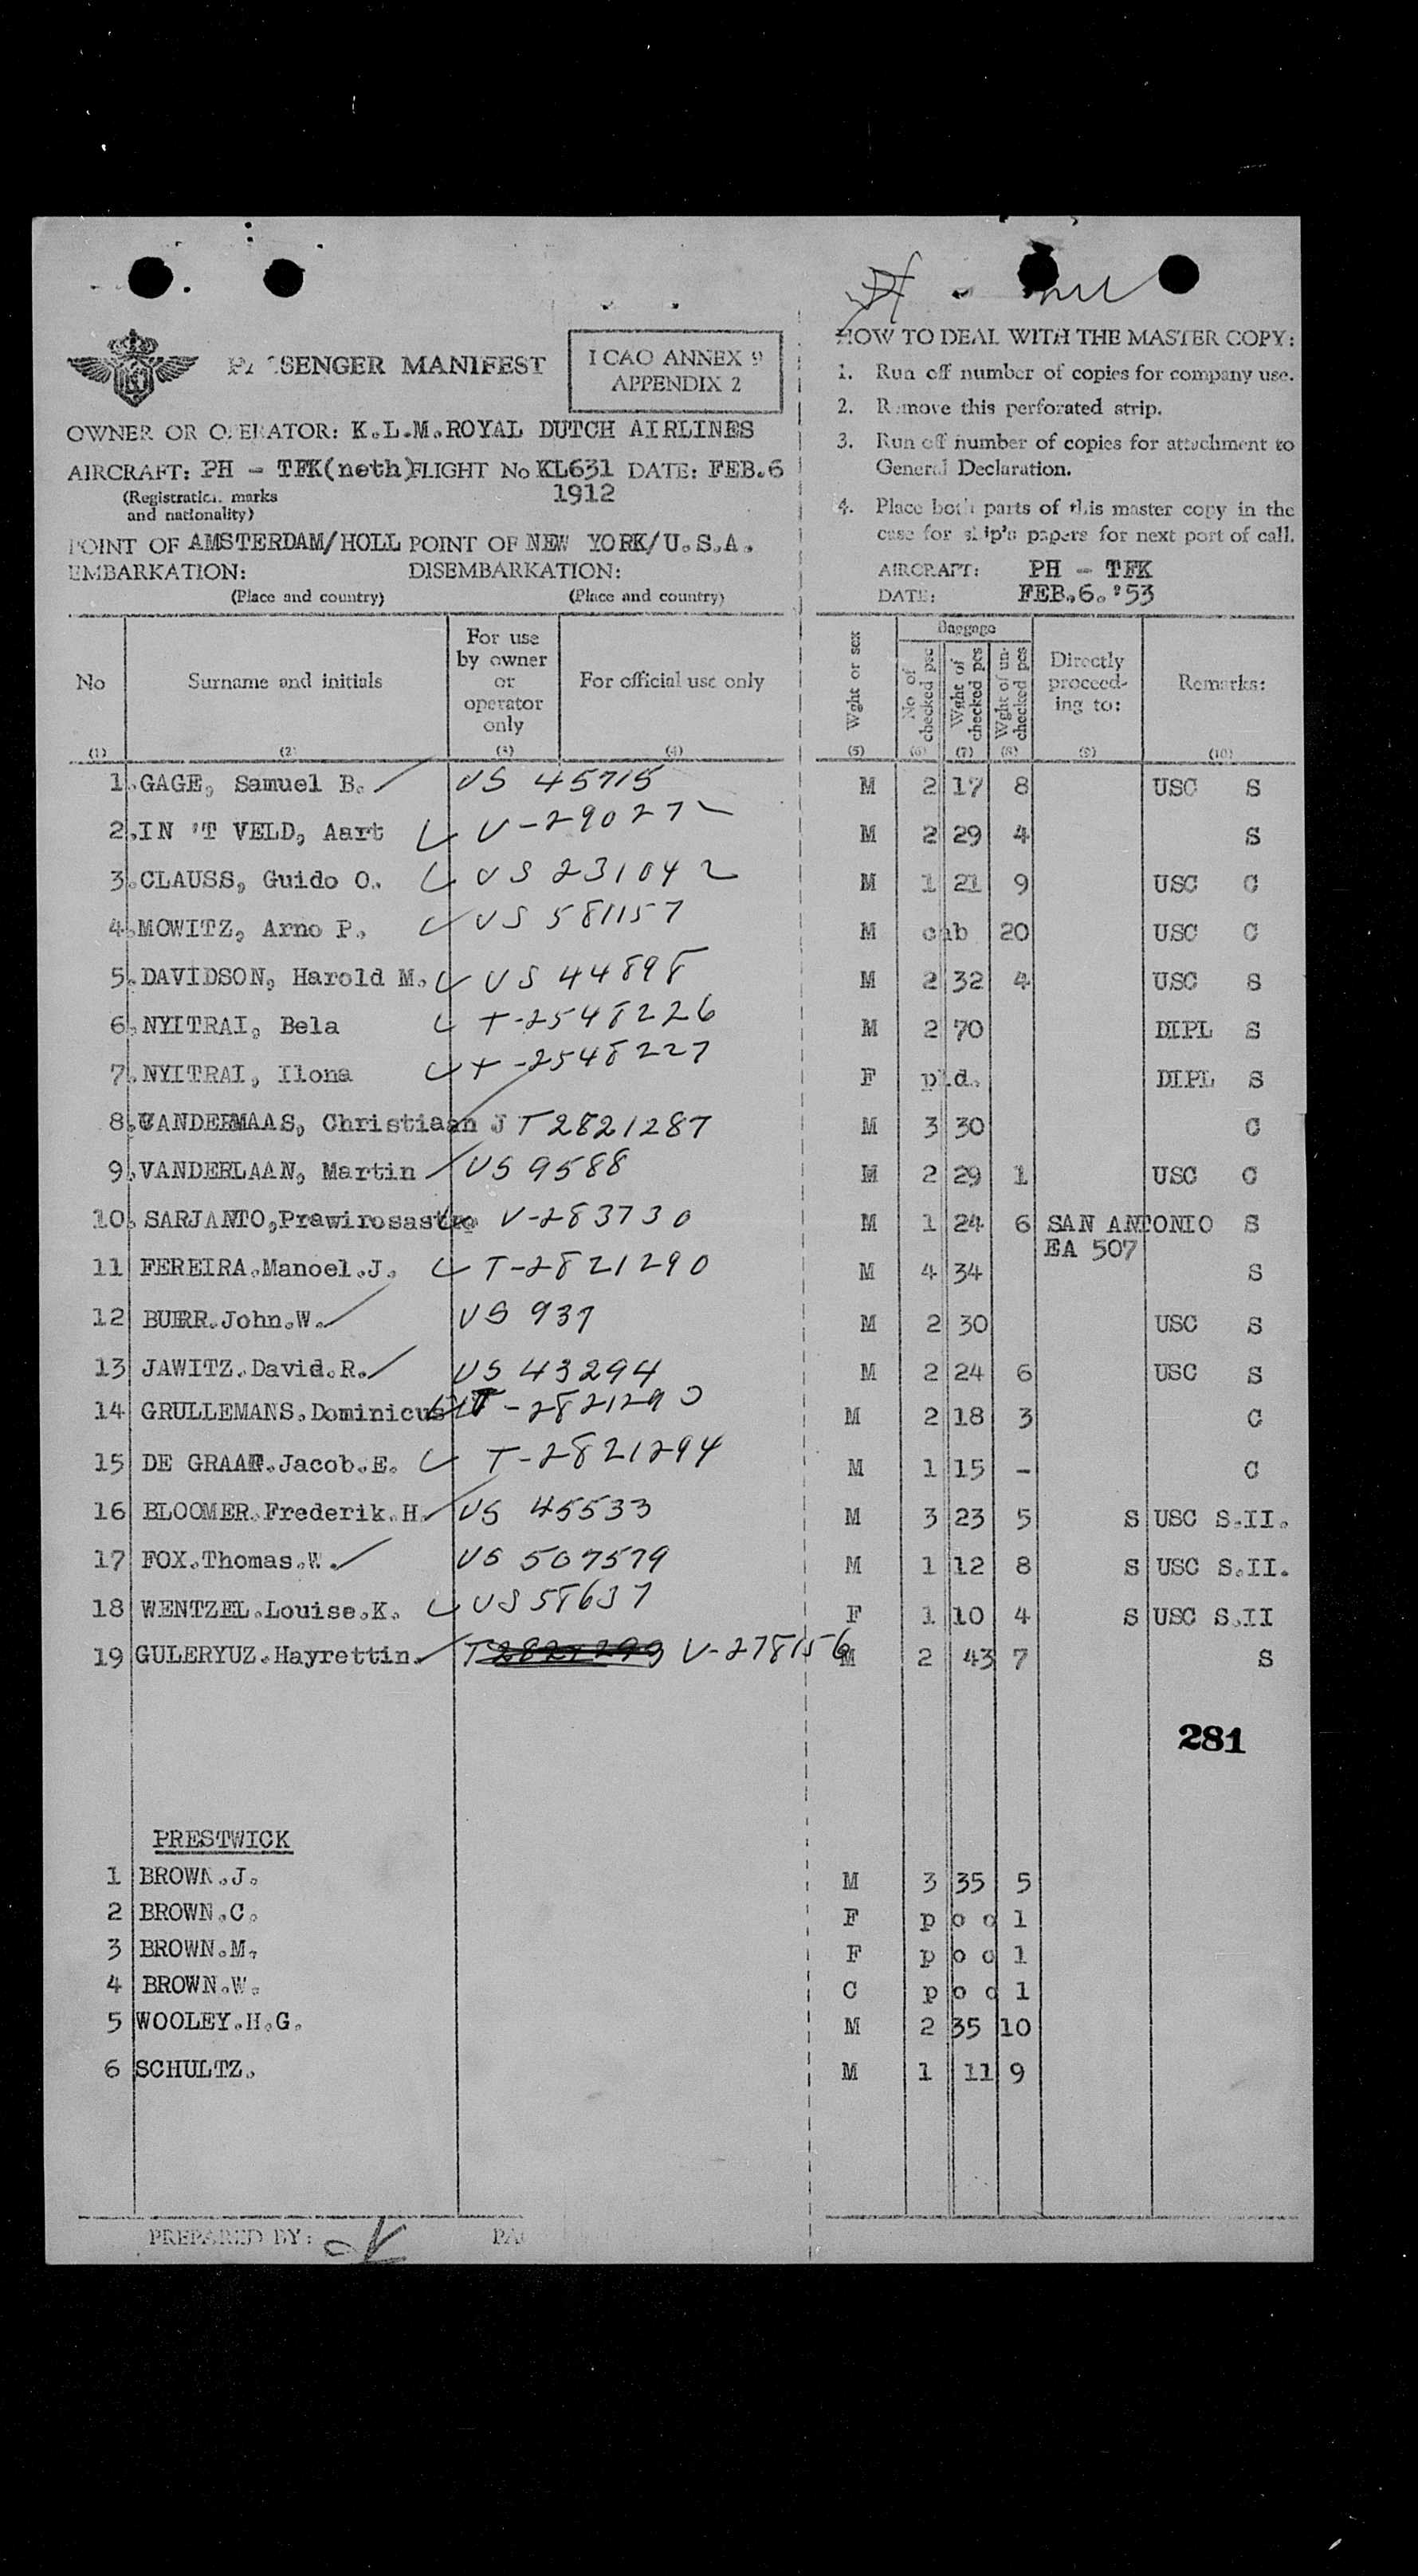 PASSENGER MANIFEST
I CAO ANNEX 9
APPENDIX 2
OWNER OR OPERATOR: K.L.M. ROYAL DUTCH AIRLINES
AIRCRAFT: PH - TFK(neth) FLIGHT No KL631 DATE: FEB.6
(Registration marks 1912
and nationality)
POINT OF AMSTERDAM/HOLL POINT OF NEW YORK/U.S.A.
EMBARKATION: DISEMBARKATION:
(Place and country) (Place and country)
HOW TO DEAL WITH THE MASTER COPY:
1. Run off number of copies for company use.
2. Remove this perforated strip.
3. Run off number of copies for attachment to
General Declaration.
4. Place both parts of this master copy in the
case for ship's papers for next port of call.
AIRCRAFT: PH - TFK
DATE: FEB.6.'53
No Surname and initials For use by owner or operator only For official use only Wght or sex Baggage No of checked pcs Wght of checked pcs Wght of un-checked pcs Directly proceed-ing to: Remarks:
(1) (2) (3) (4) (5) (6) (7) (8) (9) (10)
1. GAGE, Samuel B. US 45715 M 2 17 8 USC S
2. IN 'T VELD, Aart V-290272 M 2 29 4 S
3. CLAUSS, Guido O. US 231042 M 1 21 9 USC C
4. MOWITZ, Arno P. US 581157 M cab 20 USC C
5. DAVIDSON, Harold M. US 44898 M 2 32 4 USC S
6. NYITRAI, Bela T-2548226 M 2 70 DIPL S
7. NYITRAI, Ilona T-2548227 F pld. DIPL S
8. VANDERMAAS, Christiaan J T2821287 M 3 30 C
9. VANDERLAAN, Martin US 9588 M 2 29 1 USC C
10. SARJANTO, Prawirosastro V-283730 M 1 24 6 SAN ANTONIO S
EA 507
11 FEREIRA.Manoel.J. T-2821290 M 4 34 S
12 BURR.John.W. US 937 M 2 30 USC S
13 JAWITZ.David.R. US 43294 M 2 24 6 USC S
14 GRULLEMANS.Dominicus T-2821293 M 2 18 3 C
15 DE GRAAF.Jacob.E. T-2821294 M 1 15 - C
16 BLOOMER.Frederik.H. US 45533 M 3 23 5 S USC S.II.
17 FOX.Thomas.W. US 507579 M 1 12 8 S USC S.II.
18 WENTZEL.Louise.K. US 58637 F 1 10 4 S USC S.II
19 GULERYUZ.Hayrettin. V-278156 M 2 43 7 S
281
PRESTWICK
1 BROWN.J. M 3 35 5
2 BROWN.C. F p o o l
3 BROWN.M. F p o o l
4 BROWN.W. C p o o l
5 WOOLEY.H.G. M 2 35 10
6 SCHULTZ. M 1 11 9
PREPARED BY: